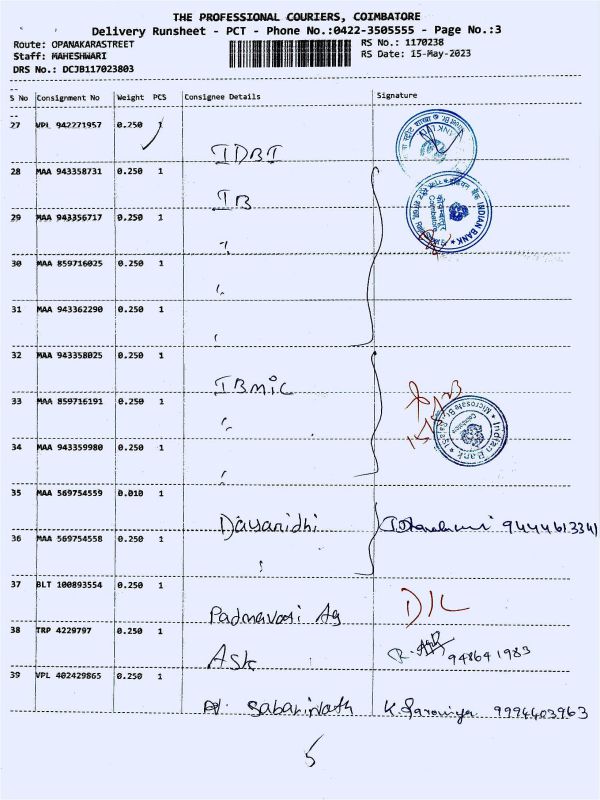 THE PROFESSIONAL COURIERS, COIMBATORE
Delivery Runsheet - PCT - Phone No.:0422-3505555 - Page No.:3
Route: OPANAKARASTREET RS No.: 1170238
Staff: MAHESHWARI RS Date: 15-May-2023
DRS No.: DCJB117023803
S No Consignment No Weight PCS Consignee Details Signature
27 VPL 942271957 0.250 1
IDBI
28 MAA 943358731 0.250 1
IB
INDIAN BANK
Coimbatore
29 MAA 943356717 0.250 1
30 MAA 859716025 0.250 1
31 MAA 943362290 0.250 1
32 MAA 943358025 0.250 1
IBMIC
33 MAA 859716191 0.250 1
Indian Bank
34 MAA 943359980 0.250 1
35 MAA 569754559 0.010 1
Dayanidhi 9444613341
36 MAA 569754558 0.250 1
37 BLT 100893554 0.250 1
Padmavathi Ag D/L
38 TRP 4229797 0.250 1
Ask 948641983
39 VPL 402429865 0.250 1
Sabarinath K. Saranya 9994403963
5